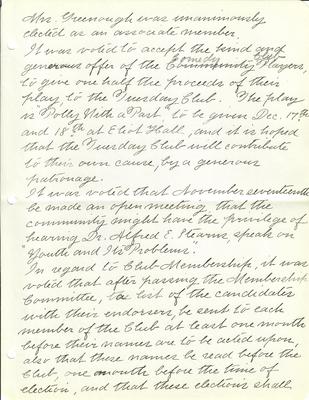 Mrs. Greenough was unanimously
elected as an associate member.
It was voted to accept the kind and
generous offer of the Community Players,
Comedy
to give one half the proceeds of their
play, to the Tuesday Club. The play
is "Polly With a Past" to be given Dec. 17th
and 18th at Eliot Hall, and it is hoped
that the Tuesday Club will contribute
to their own cause, by a generous
patronage.
It was voted that November seventeenth
be made an open meeting, that the
community might have the privilege of
hearing Dr. Alfred E. Stearns, speak on
"Youth and Its Problems".
In regard to Club Membership, it was
voted that after passing the Membership
Committee, a list of the candidates
with their endorsers, be sent to each
member of the Club at least one month
before their names are to be acted upon,
also that these names be read before the
Club, one month before the time of
election, and that these elections shall